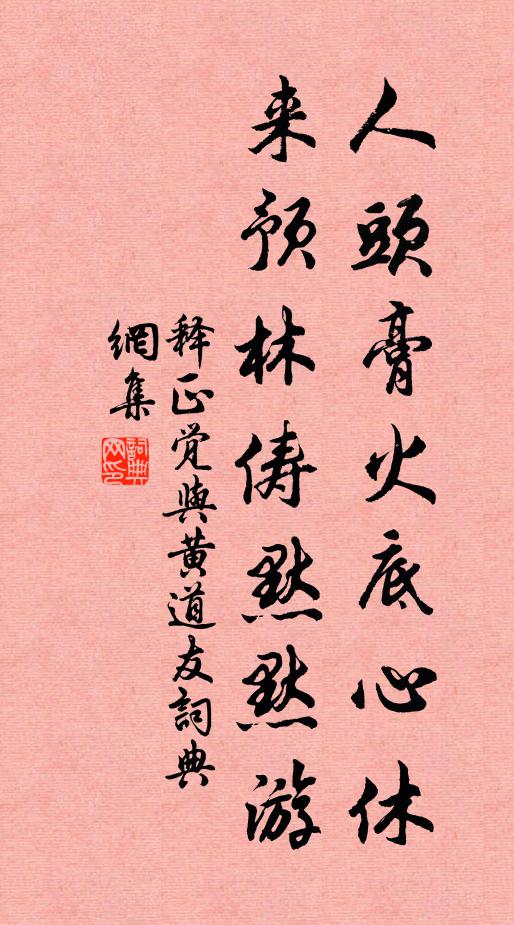 人頭膏火底心休
来预林俦黙黙游
释正觉與黄道友詞典
網集
詞典網印